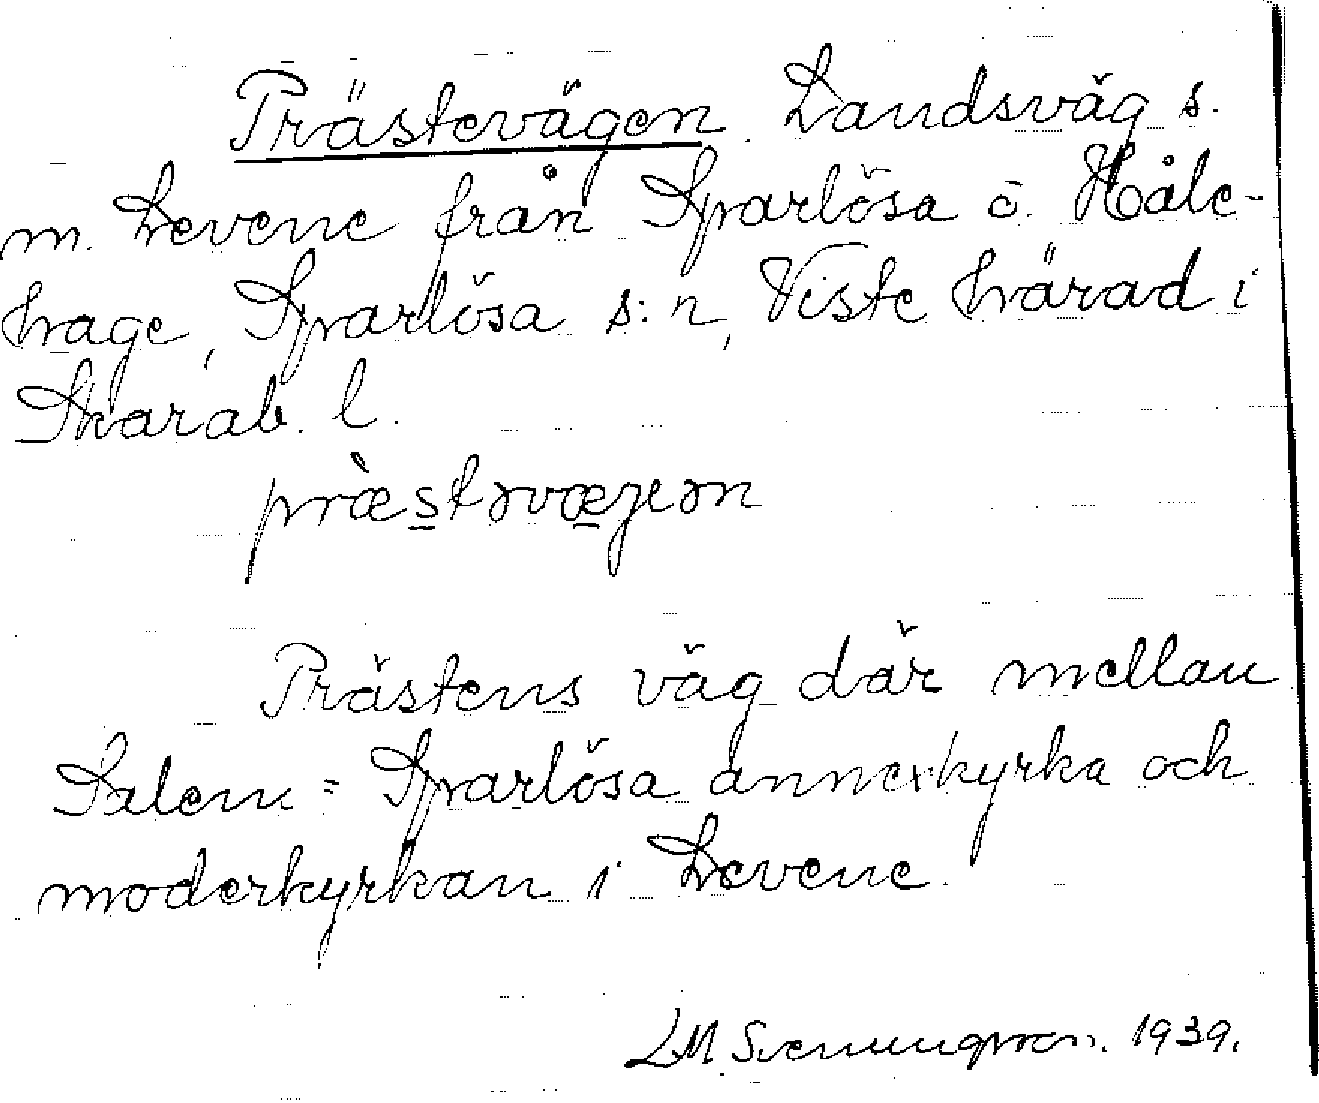 Prästevägen. Landsväg s.
m. Levene från Sparlösa ö. Håle-
hage, Sparlösa s:n, Viste härad i
Skarab. l.
præstəvægən
Prästens väg där mellan
Salem = Sparlösa annexkyrka och
moderkyrkan i Levene.
L.M. Svenungsson. 1939.